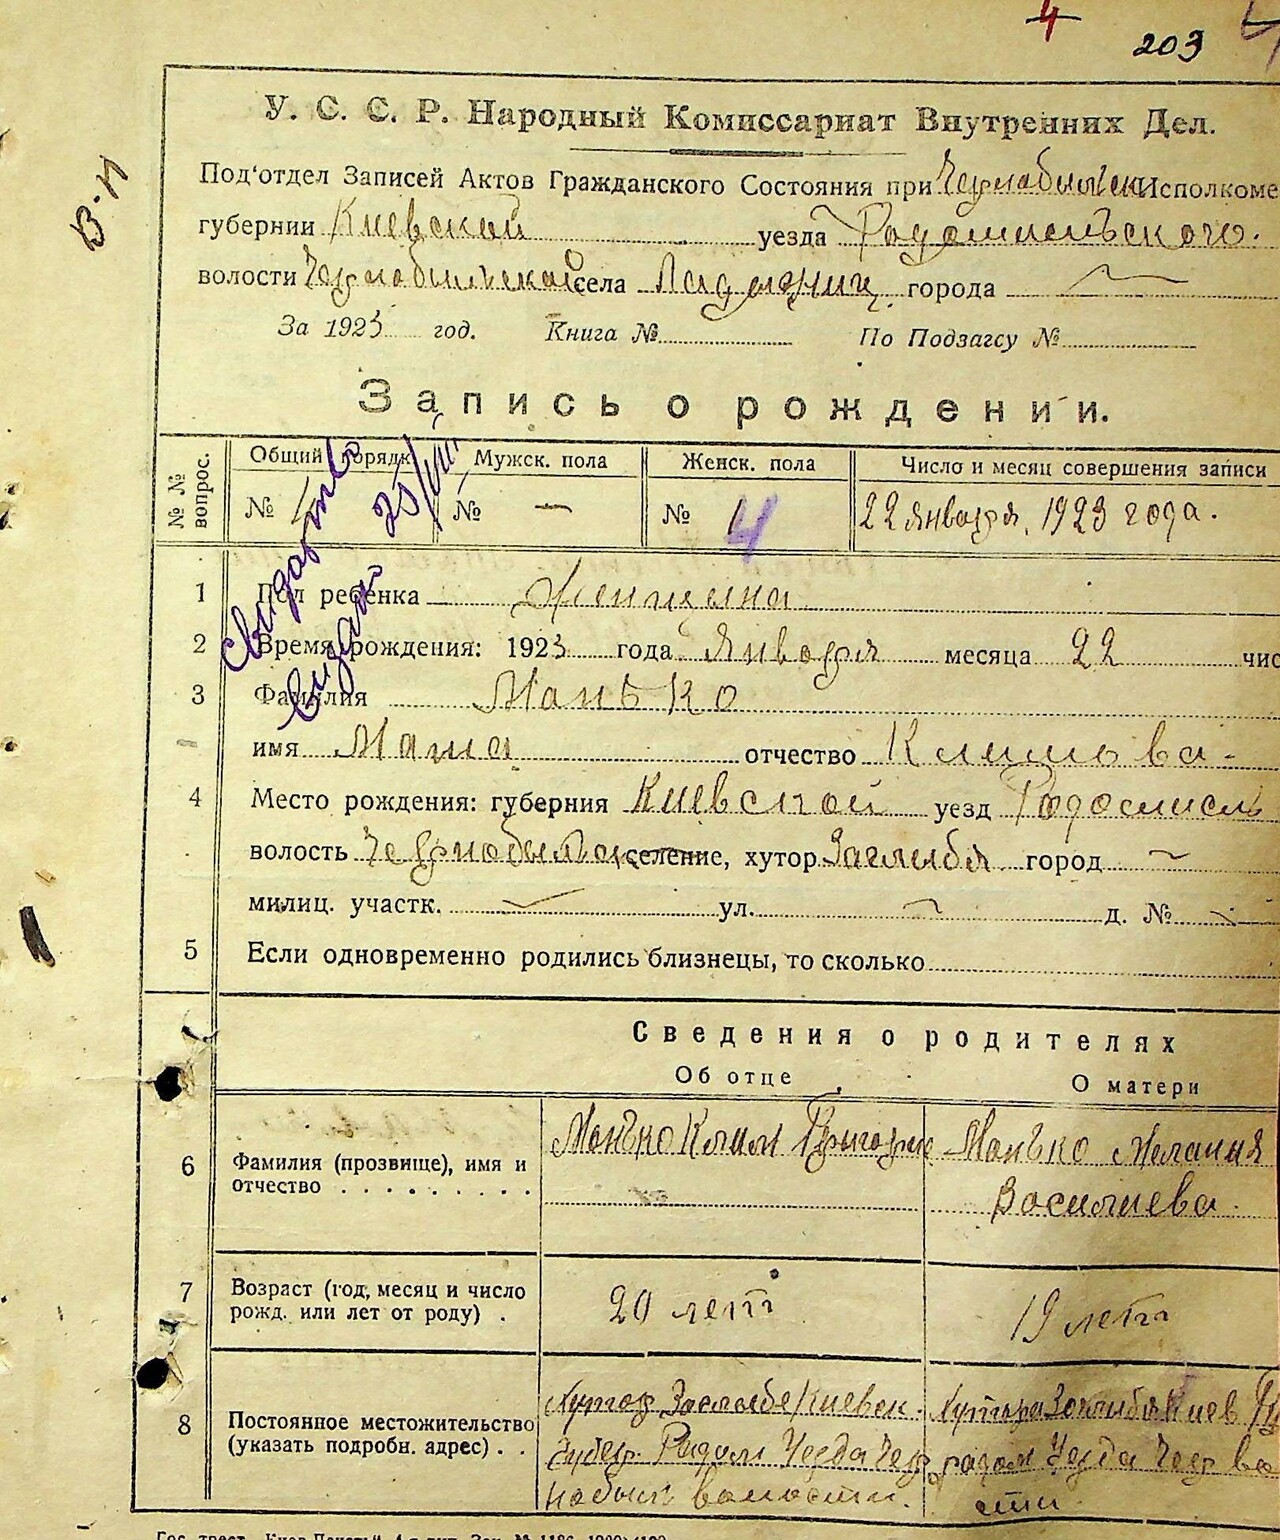 4
203
В-И
У. С. С. Р. Народный Комиссариат Внутренних Дел.
Под'отдел Записей Актов Гражданского Состояния при Чернобыльск Исполкоме
губернии Киевской уезда Радомисльского.
волости Чернобыльской села города
За 1923 год. Книга № По Подзагсу №
Запись о рождении.
№ № вопрос.
Общий порядк Мужск. пола Женск. пола Число и месяц совершения записи
№ 1 № — № 1 4 22 января 1923 года.
Свидетельство выдано 25/VIII
1 Пол ребенка Женщина
2 Время рождения: 1923 года Января месяца 22 чис
3 Фамилия Манько
имя отчество Климова-
4 Место рождения: губерния Киевской уезд Радомисль
волость селение, хутор Заглыбя город
милиц. участк. ул. д. №
5 Если одновременно родились близнецы, то сколько
Сведения о родителях
Об отце О матери
6 Фамилия (прозвище), имя и отчество
Манько Клим Григорие
Манько Мелания
Василиева.
7 Возраст (год, месяц и число рожд. или лет от роду)
20 лет
19 лет
8 Постоянное местожительство (указать подробн. адрес)
Хутор Заглыбе Киевск.
губер. Радом Уезда Чер
нобыл волости.
Хутора Заглыбя Киев Гу
радом Уезда Чер во
сти.